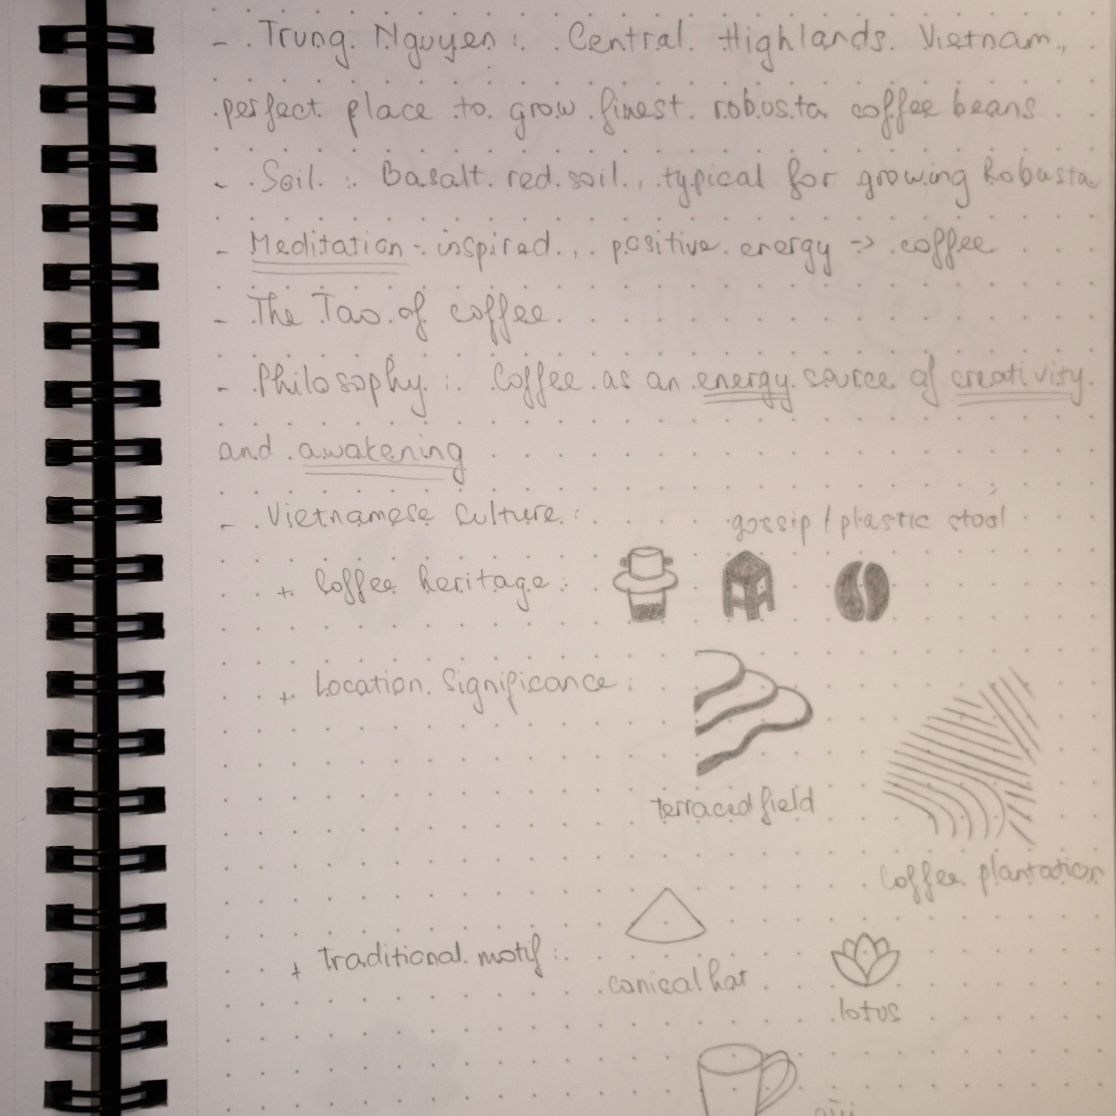 - Trung Nguyen : Central Highlands Vietnam,
perfect place to grow finest robusta coffee beans
- Soil : Basalt red soil, typical for growing Robusta
- Meditation-inspired, positive energy -> coffee
- The Tao of coffee
- Philosophy : Coffee as an energy source of creativity
and awakening
- Vietnamese Culture :
gossip / plastic stool
+ Coffee heritage :
+ Location Significance :
terraced field
Coffee plantation
+ traditional motif :
conical hat
lotus